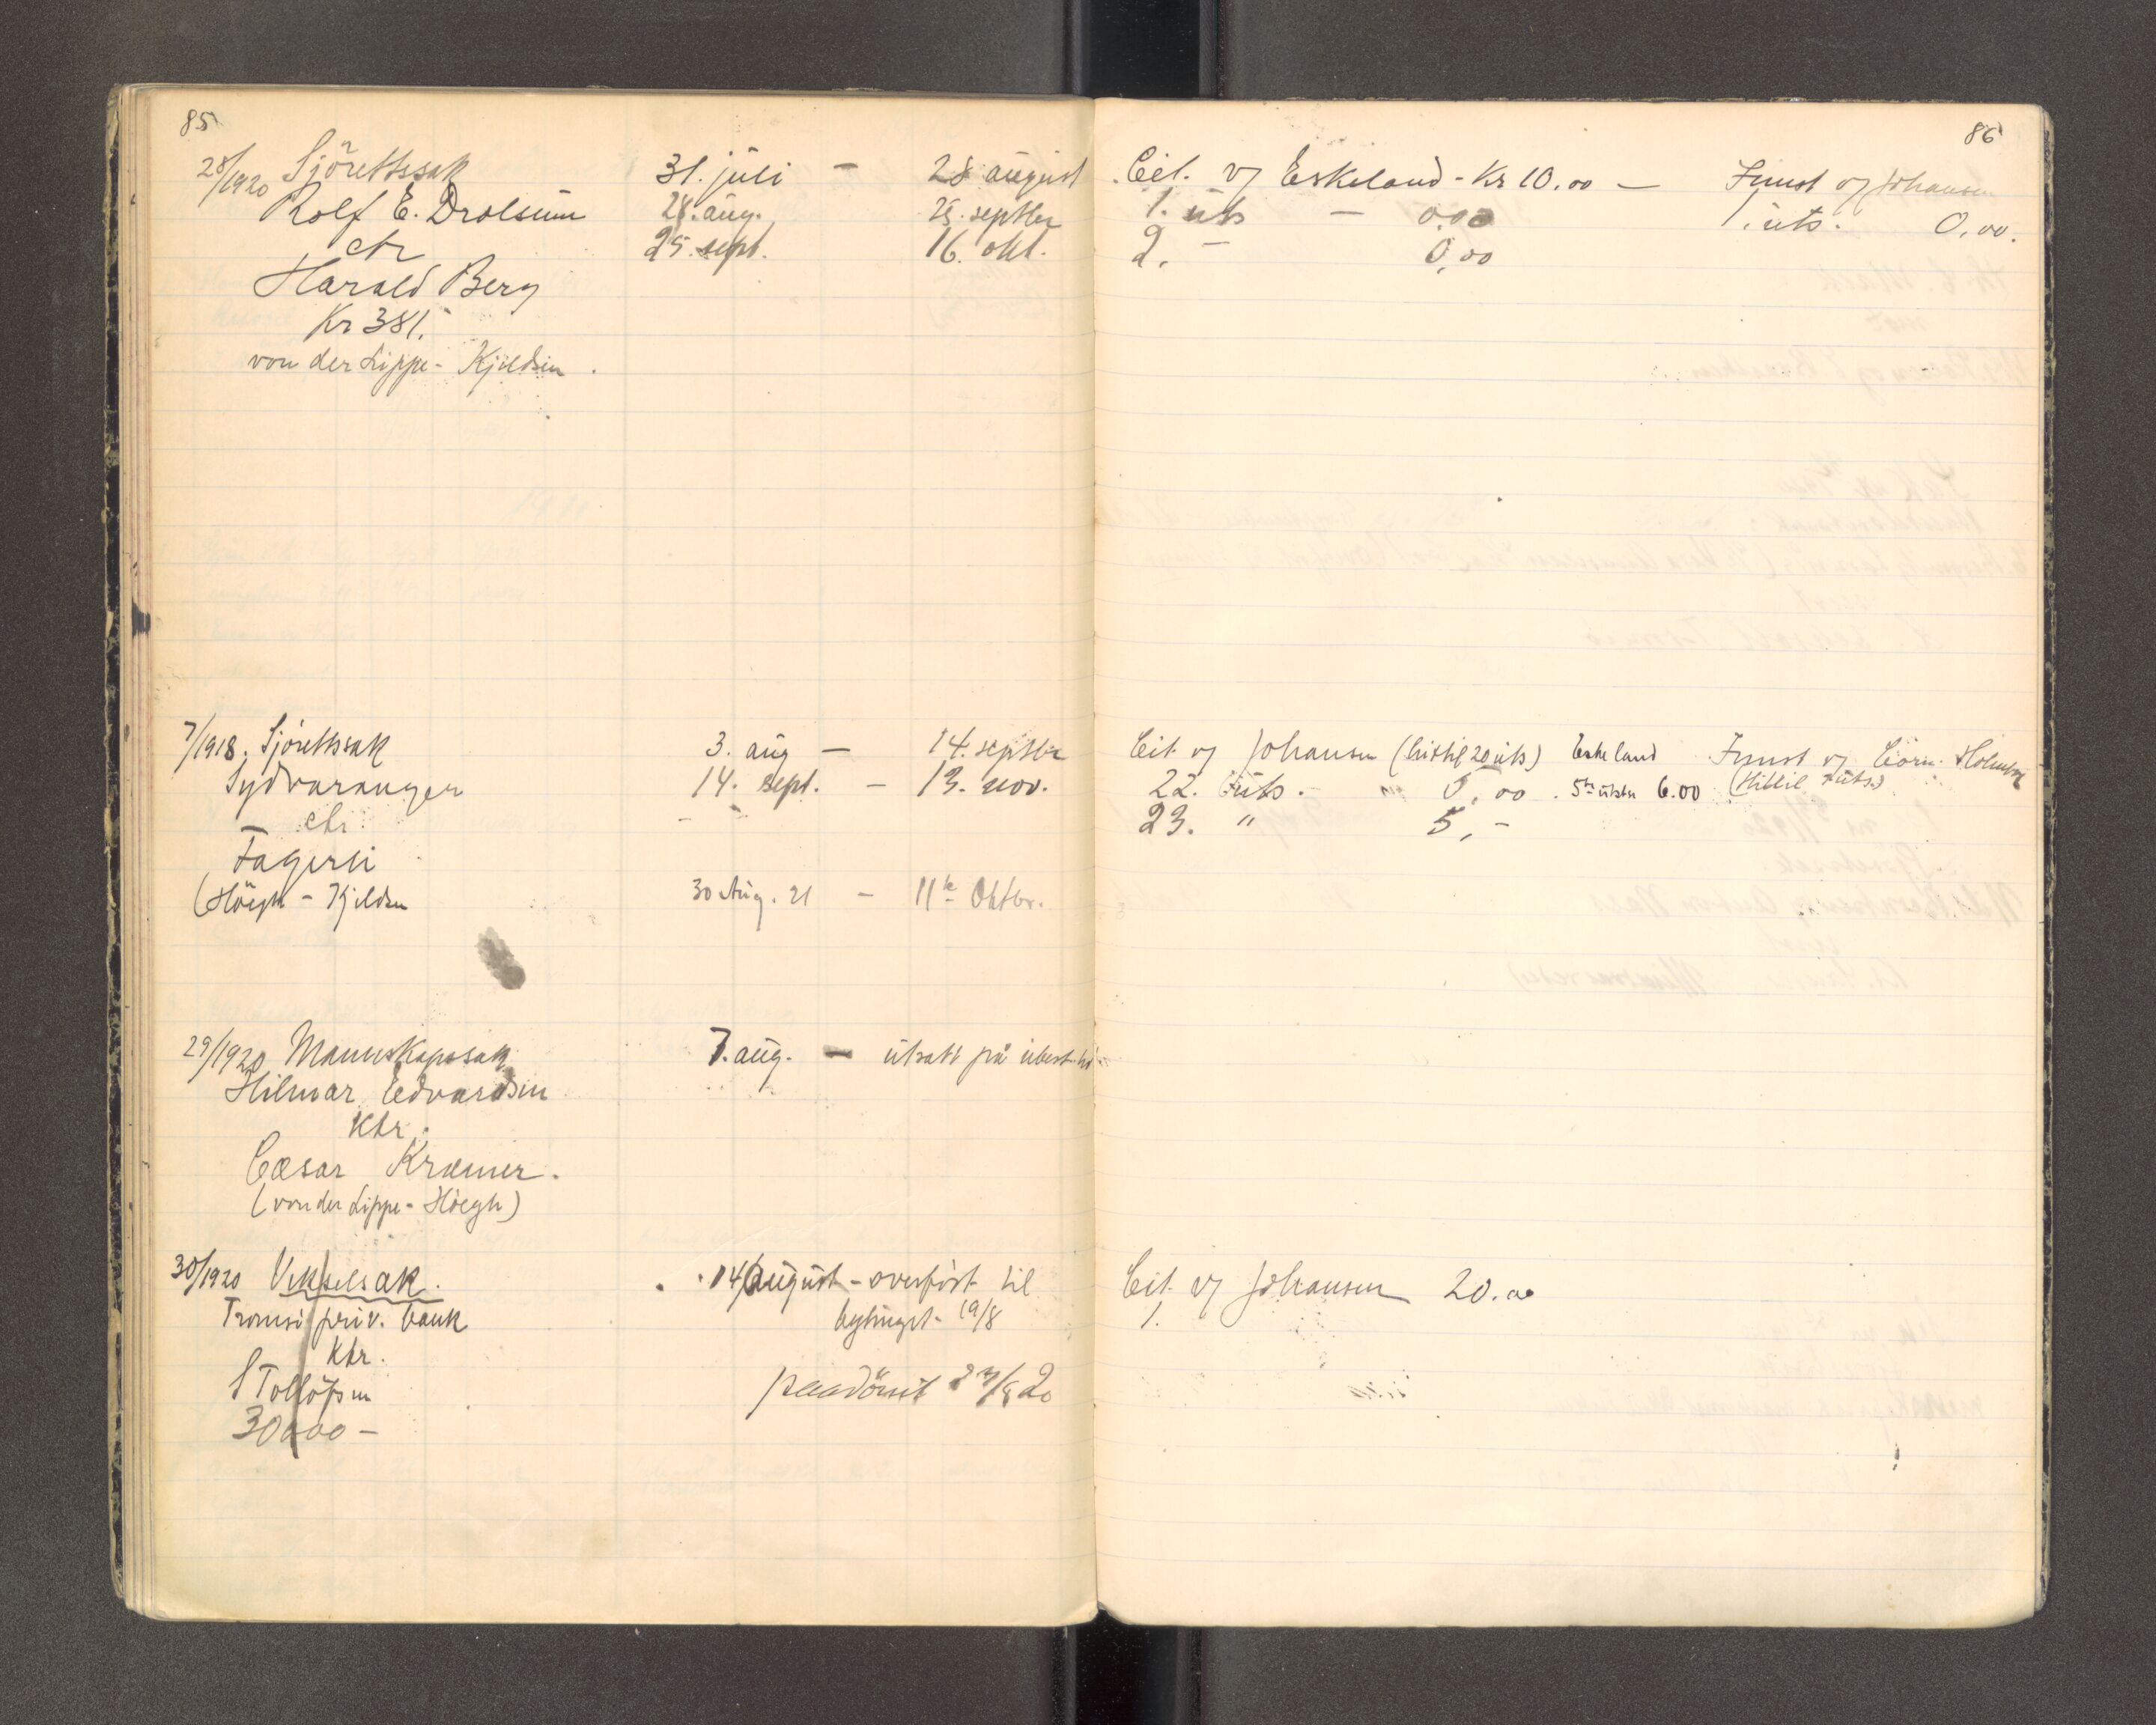 85
28/1920 Sjörettssak 31. juli — 28 august
Rolf E. Drolsum 28. aug. 25. septbr
ctr 25. sept. 16. okt.
Harald Berg
Kr 381.-
von der Lippe - Kjeldsen.
7/1918. Sjörettssak 3. aug — 14. septbr
Sydvaranger 14. sept. — 13. nov.
ctr.
Fagerli
(Höegh - Kjeldsen 30 Aug. 21 — 11te Oktbr.
29/1920 Mannskapssak 7. aug. — utsatt på ubest. tid
Hilmar Edvardsen
Ktr.
Cæsar Kræmer.
(von der Lippe - Höegh)
30/1920 Vekselsak. 14/august - overført til
Tromsö priv. bank bytinget. 19/8
Ktr.
S Tollöfsen paadömt /8 20
30000 —
86
Cit. v/ Eskeland - Kr 10.00 — Innst v/ Johansen
1. uts — 0.00 1. uts. 0.00.
2. — 0,00
Cit. v/ Johansen (hittil 20 uts) Eskeland Innst v/ Holmboe
22. uts. 0,00. 5te utstr 6.00 (Hittil uts.)
23. " 5,-
Cit. v/ Johansen 20.00
1.